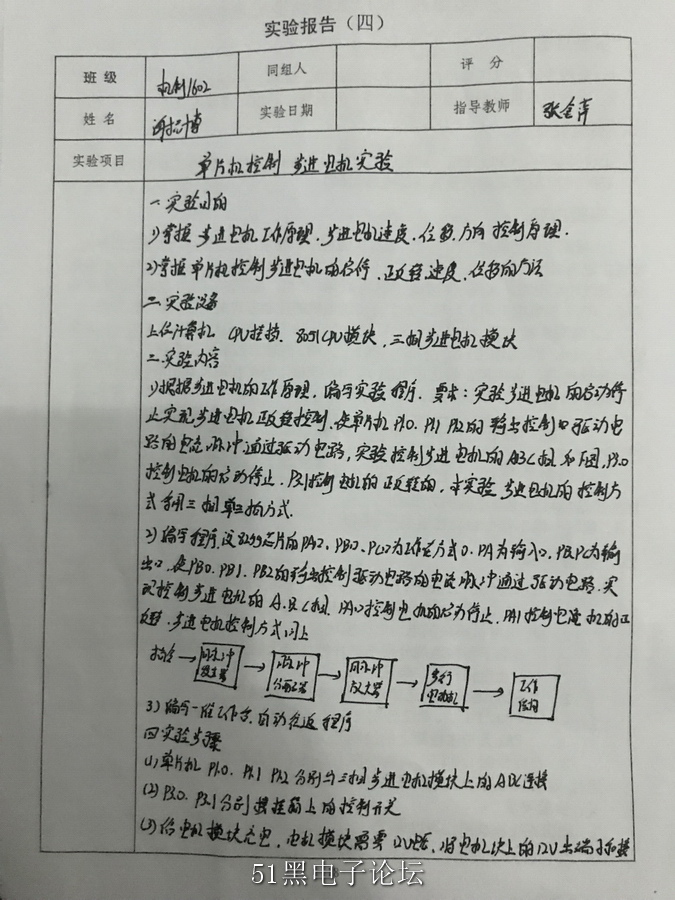 实验报告（四）
班 级 机制1602 同组人 评 分
姓 名 实验日期 指导教师 张金萍
实验项目 单片机控制步进电机实验
一、实验目的
1)掌握步进电机工作原理、步进电机速度、位移、方向控制原理.
2)掌握单片机控制步进电机的启停、正反转、速度、位移的方法
二、实验设备
上位计算机 CPU挂箱、8051CPU模块,三相步进电机模块
三、实验内容
1)根据步进电机的工作原理,编写实验程序.要求:实验步进电机的启动停
止实现步进电机正反转控制,使单片机P1.0、P1.1 P1.2的 控制口驱动电
路的电流脉冲通过驱动电路,实验控制步进电机的ABC相 P3.0
控制电机的启动停止.P3.1控制电机的正反转的,本实验步进电机的控制方
式采用三相单三拍方式.
2)编写程序,设8255芯片的PA口、PB口、PC口为工作方式0.PA为输入口,PB,PC为输
出口,使PB0、PB1、PB2的 控制驱动电路的电流脉冲通过驱动电路,实
现控制步进电机的A.B.C相.PA0控制电机的启动停止.PA1控制电流机的正
反转,步进电机控制方式同上
指令 脉冲发生器 脉冲分配器 脉冲放大器 步行电动机 工作
3)编写一维工作台自动往返程序
四、实验步骤
(1)单片机P1.0、P1.1 P1.2分别与三相步进电机模块上的ABC连接
(2)P3.0、P3.1分别接挂箱上的控制开关
(3)给电机模块充电,电机模块需要12V电,将电机块上的12V 端子和接
51黑电子论坛